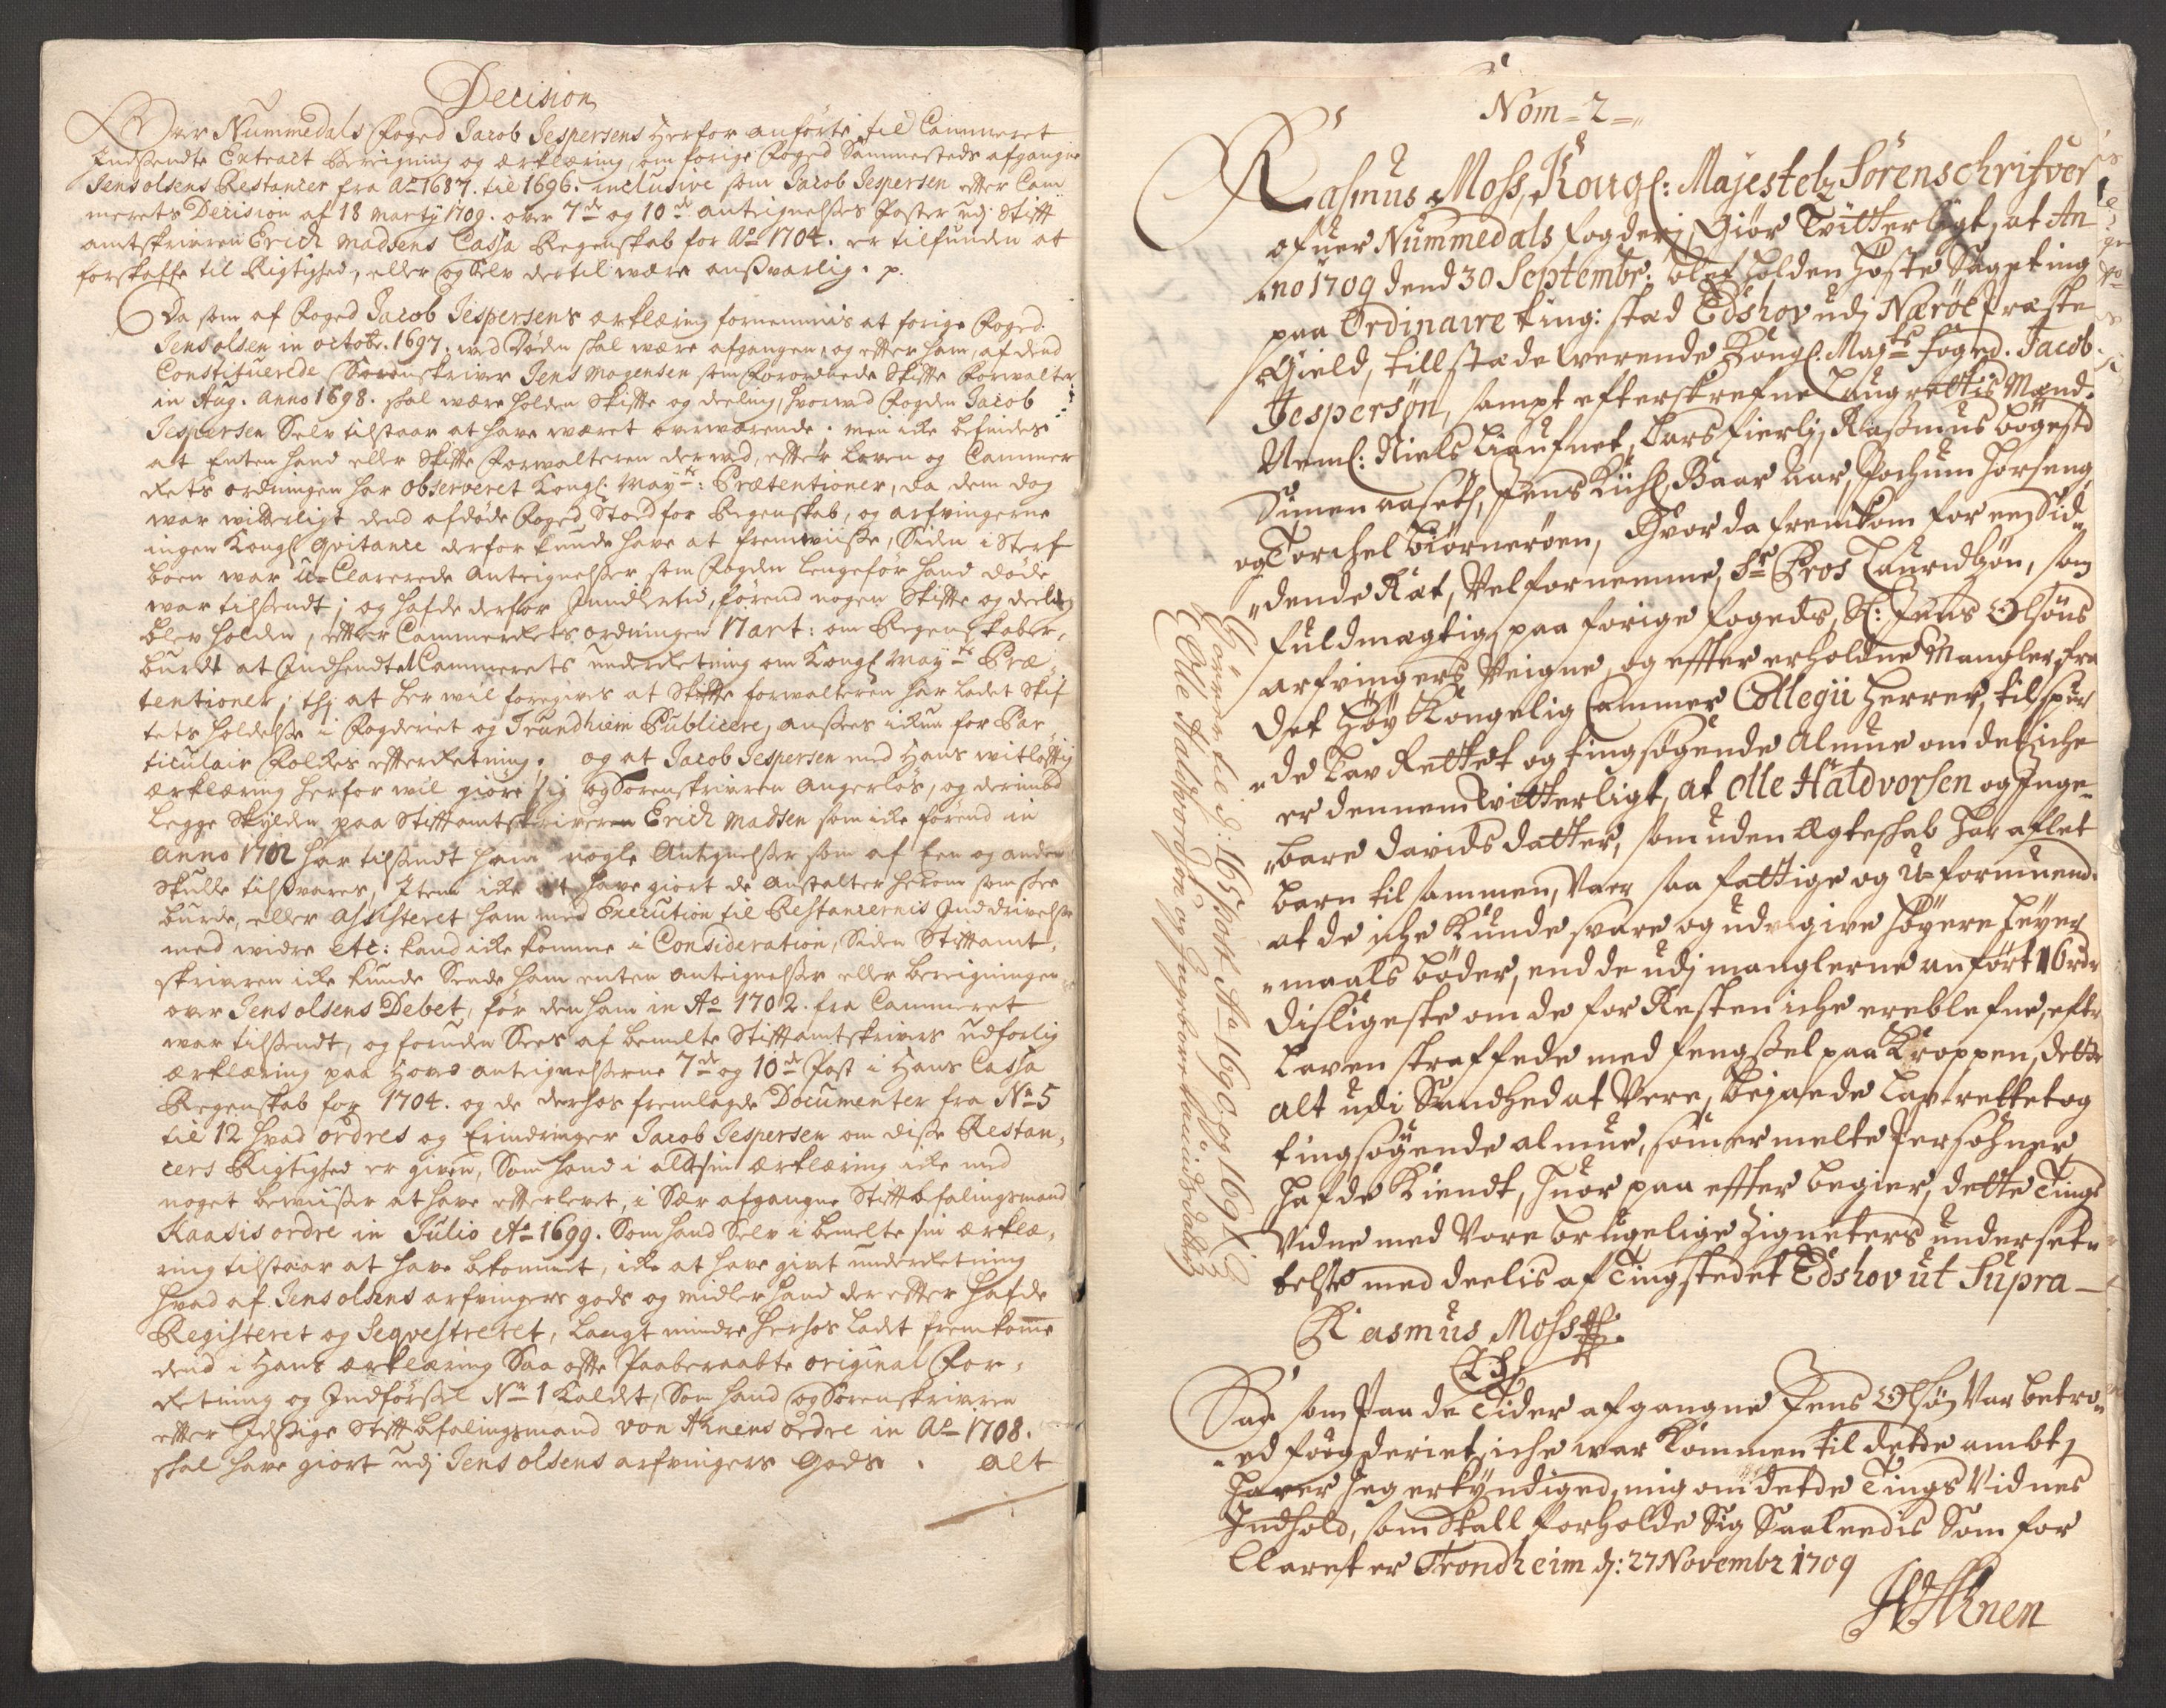 Decision
Over Nummedals Foged Jacob Jespersens herfor anførte til Cammeret
Indsendte Extract Beregning og ærklæring, om forige Foged Sammesteds afgangne
Jens olsens Restancer fra Ao 1687. til 1696. inclusive som Jacob Jespersen efter Cam
merets Decision af 18 Marty 1709. over 7de og 10de antegnelses Poster udj Stift
amtskriveren Erich Madsens Cassa Regenskab for Ao 1704. er tilfunden at
forskaffe til Rigtighed, eller og Selv dertil være ansvarlig. p.
Da som af Foged Jacob Jespersens ærklæring fornemmis at forige Foged
Jens olsen in octobr. 1697. ved Døden skal være afgangen, og efter ham, af dend
Constituerede Sorenskriver Jens Mogensen som Forordnede Skifte Forvalter
in Aug. Anno 1698. skal være holden Skifte og deeling, hvorved Fogden Jacob
Jespersen Selv tilstaar at have været overværende, men icke befindes
at Enten hand eller Skifte Forvalteren derved, efter Loven og Cammer
Rets ordningen har observeret Kongl. Mayts: Prætentioner, da dem dog
war witterligt dend afdøde Foged Stoed for Regenskab, og arfvingerne
ingen Kongl Qvitance derfor kunde have at fremwiise, Siden i Sterf
boen war u-Clarerede Antegnelser som Fogden lenge før hand døde
war tilsendt; og hafde derfor Imidlertid, førend nogen Skifte og deeling
blev holden, efter Cammerrets ordningen 17 art: om Regenskaber,
burdt at Indhendte Cammerets underretning om Kongl Mayts Præ
tentioner; thj at her wil foregives at Skifte forwalteren har ladet Skif
tets holdelse i Fogderiet og Trundhiem Publicere, ansees ickun for Par
ticulair Folkes efterretning; og at Jacob Jespersen med Hans witløftig
ærklæring herfor wil giøre sig og Sorenskriveren Angerløs, og derimod
legge Skylden paa Stiftamtskriveren Erich Madsen som icke førend in
Anno 1702 har tilsendt ham nogle Antegnelser som af Een og anden
Skulle tilsvares, Item icke at have giort de anstalter herom som skee
burde, eller assisteret ham med Execution til Restancernis Inddrivelse
med widre etc: kand icke komme i Consideration, Siden Stiftamt,
skriveren icke kunde Sende ham enten antegnelser eller beregningen
over Jens olsens Debet, før den ham in Ao 1702. fra Cammeret
war tilsendt, og foruden Sees af bemelte Stiftamtskrivers udførlig
ærklæring paa Hoved antegnelserne 7de og 10de Post i Hans Cassa
Regenskab for 1704. og de derhos fremlagde Documenter fra No 5
til 12 hvad ordres og Erindringer Jacob Jespersen om disse Restan,
cers Rigtighed er given, Som hand i ald sin ærklæring icke med
noget beviiser at have efterlevet, i Sær afgangne Stiftbefalingsmand
Kaasis ordre in Julio Ao 1699. Som hand Selv i bemelte sin ærklæ,
ring tilstaar at have bekommet, icke at have givet underretning
hvad af Jens olsens arfvingers gods og midler hand derefter hafde
Registeret og Seqvestreret, langt mindre herhos ladet fremkomme
dend i Hans ærklæring Saa ofte Paaberaabte original For,
Retning og Indførsel No 1 kaldet, Som hand og Sorenskriveren
efter Itzige Stiftbefalingsmand von Ahnens ordre in Ao 1708.
skal have giort udj Jens olsens arfvingers Gods. alt
Nom = 2 =
Rasmus Moss, Kongl: Majestetz Sorenschrifver
ofuer Nummedals fogderj, Giør Vitterligt, at An
no 1709 dend 30 Septembr: blef holden Høste Sageting
paa Ordinaire ting: stæd Edshov udj Nærøe Præste
Gield, till stæde werende Kongl. Mayts foged. Jacob
Jespersøn, sampt efterskrefne Laugrettis Mænd.
Neml: Niels Liaufnet, Lars fierlj, Rassmus bøgestd
Simen aaseth, Jens Kihl, Baar Aar, Jochum Horseng
og Torchel biørnerøen, Hvor da fremkom for eendid
dende Ræt, Velfornemme Sr Peros Lauridsøn, som
fuldmægtig paa forige fogeds, Sl: Jens Olsøns
arfvingers Veigne, og efter erholdne Mangler, fra
det Høy Kongelig Cammer Collegii Herrer, tilspur
de Lav Rettet og tingsøgende Almue om det iche
er dennem witterligt, at Olle Haldvorsen og Inge
bare Davids datter, som uden Ægteskab har aflet
barn til sammen, Vaer saa fattige og u-formuend.
at de iche kunde svare og udrgive høyere Leyer
maals bøder, end de udj manglerne anført 16 rdr
disligeste om de for Resten iche er eblefne, efter
Loven straffede med fengssel paa Kroppen, dette
alt udi Sandhed at Vere, bejaede Lav rettet og
tingsøgende almue, som ermelte Persohner
hafde Kiendt, Huor paa efter begier, dette Tings
Vidne med Vore brugelige Zigneters underset
telse med deelis af Tingstedet Edshov ut Supra
Rasmus Moss
LS
Saa som Paa de Tider afgangne Jens Olsøn Var betro
ed foegderiet, iche war Kommen til dette ambt,
Haver Jeg erkyndiget mig om dette Tings Vidnes
Indhold, som Skall forholde Sig Saaleedis Som for
Claret er Trondheim d: 27 Novembr 1709
HvAhnen
Hører til d: 16 Post Ao 1690 og 1691
Olle Haldvordsøn og Ingebore Davidsdatter